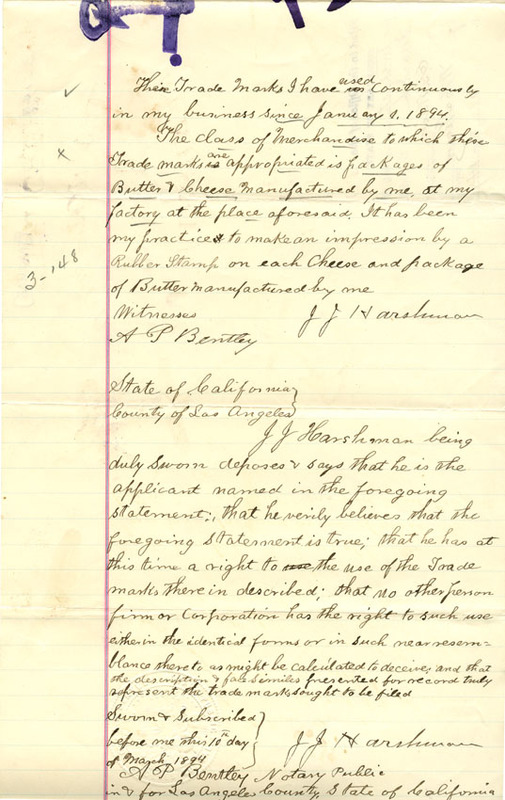 These Trade Marks I have used continuously
in my business since January 1. 1894.
The class of Merchandise to which these
Trade marks are appropriated is packages of
Butter & Cheese manufactured by me, at my
factory at the place aforesaid, It has been
my practice to make an impression by a
Rubber Stamp on each Cheese and package
of Butter manufactured by me
Witnesses J J Harshman
A P Bentley
3-148
State of California }
County of Los Angeles }
J J Harshman being
duly sworn deposes & says that he is the
applicant named in the foregoing
statement; that he verily believes that the
foregoing statement is true; that he has at
this time a right to use the use of the Trade
marks therein described; that no other person
firm or Corporation has the right to such use
either in the identical forms or in such near resem-
blance thereto as might be calculated to deceive; and that
the description & facsimiles presented for record truly
represent the trade marks sought to be filed
Sworn & Subscribed }
before me this 10th day } J J Harshman
of March 1894
A P Bentley Notary Public
in & for Los Angeles County, State of California